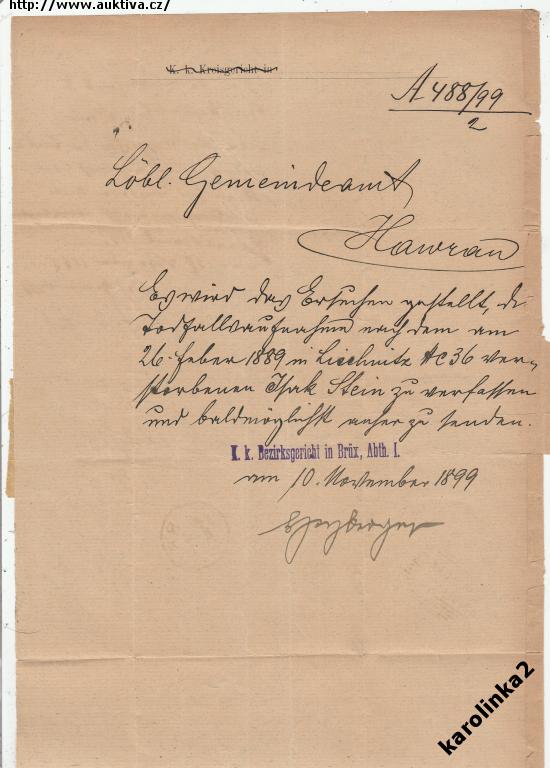 http://www.auktiva.cz/
K. k. Kreisgericht in
A 488/99
2
Löbl. Gemeindeamt
Hawran
Es wird das Ersuchen gestellt, die
Todfallsaufnahme nach dem am
26. Feber 1889 in Lischnitz Nc 36 ver-
storbenen Isak Stein zu verfassen
und baldmöglichst anher zu senden.
K. k. Bezirksgericht in Brüx, Abth. I.
am 10. November 1899
karolinka2